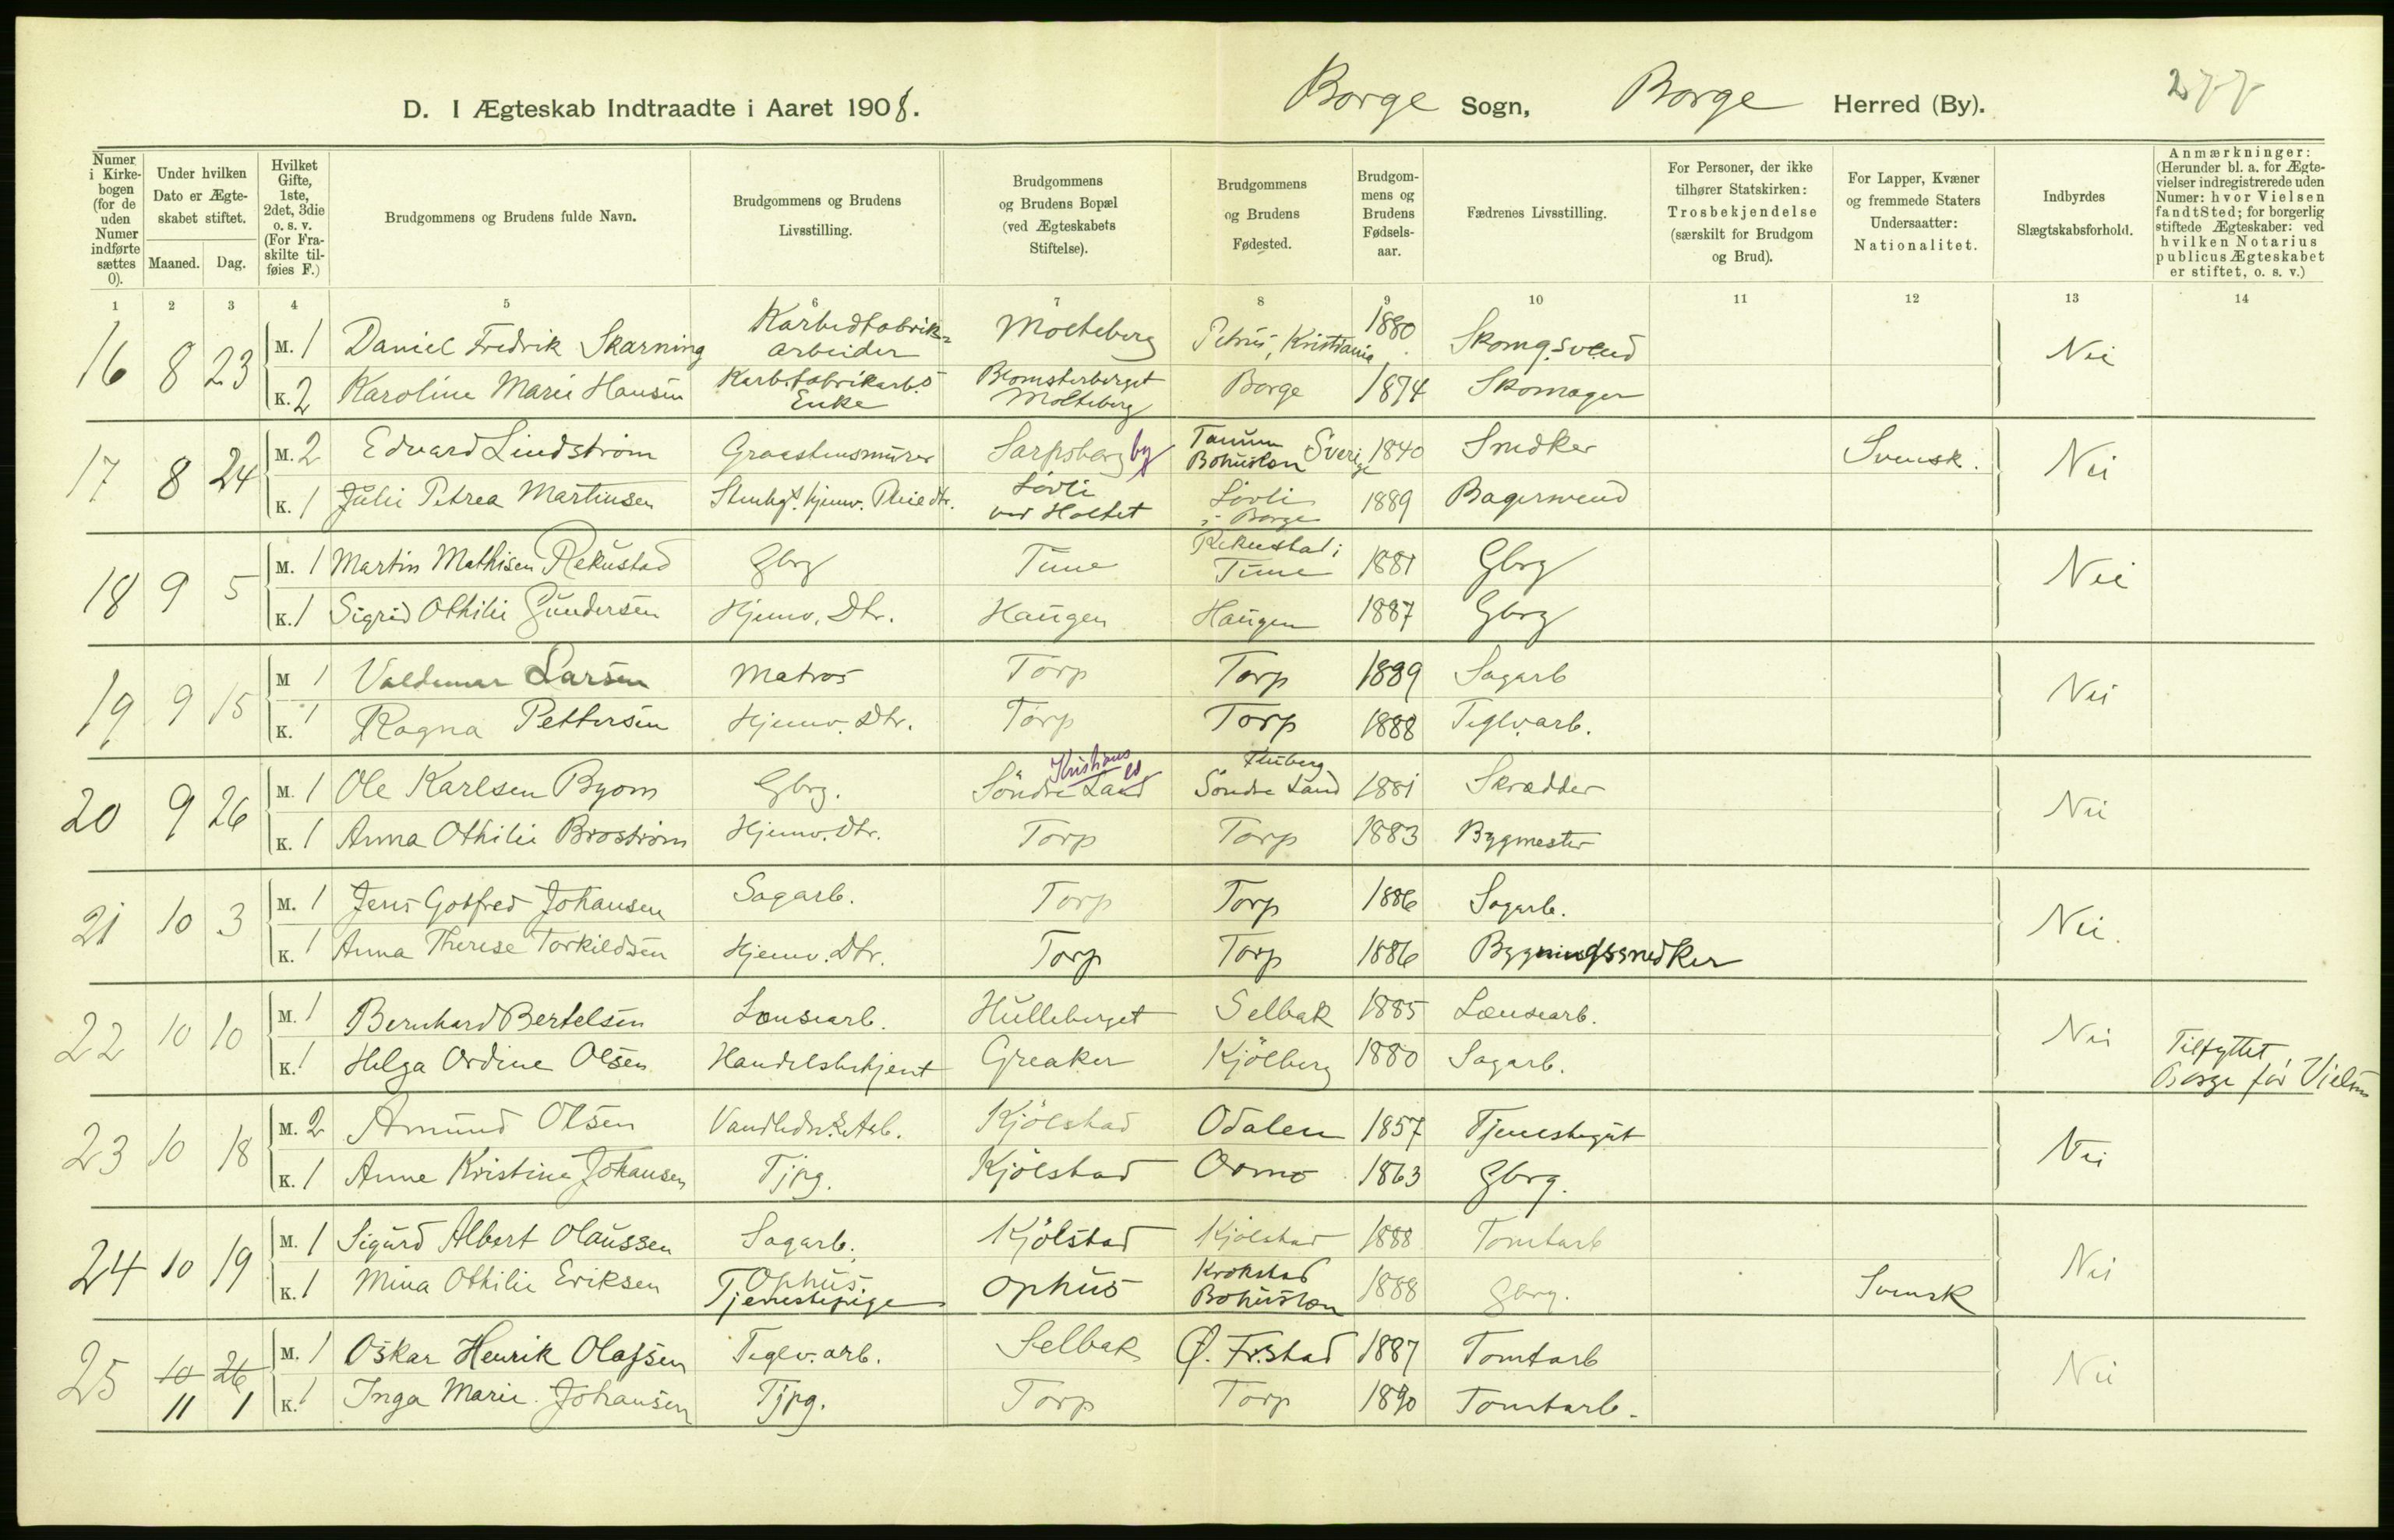 277
D. I Ægteskab Indtraadte i Aaret 1908.
Borge Sogn, Borge Herred (By).
Numer i Kirkebogen (for de uden Numer indførte sættes 0).
Under hvilken Dato er Ægteskabet stiftet.
Maaned. Dag.
Hvilket Gifte, 1ste, 2det, 3die o. s. v. (For Fraskilte tilføies F.)
Brudgommens og Brudens fulde Navn.
Brudgommens og Brudens Livsstilling.
Brudgommens og Brudens Bopæl (ved Ægteskabets Stiftelse).
Brudgommens og Brudens Fødested.
Brudgommens og Brudens Fødselsaar.
Fædrenes Livsstilling.
For Personer, der ikke tilhører Statskirken: Trosbekjendelse (særskilt for Brudgom og Brud).
For Lapper, Kvæner og fremmede Staters Undersaatter: Nationalitet.
Indbyrdes Slægtskabsforhold.
Anmærkninger: (Herunder bl. a. for Ægtevielser indregistrerede uden Numer: hvor Vielsen fandt Sted; for borgerlig stiftede Ægteskaber: ved hvilken Notarius publicus Ægteskabet er stiftet, o. s. v.)
1 2 3 4 5 6 7 8 9 10 11 12 13 14
16 8 23 M. 1 Daniel Fredrik Skarning Karbidfabrikarbeider Molteberg Petrus, Kristiania 1880 Skomg.svend Nei
K. 2 Karoline Marie Hansen Karbifabrikarbs Enke Blomsterberget Molteberg Borge 1874 Skomager
17 8 24 M. 2 Edvard Lindstrøm Graastensmurer Sarpsborg by Tanum Bohuslen Sverige 1840 Snedker Svensk. Nei
K. 1 Julie Petrea Martinsen Stenhgs hjemv. Pleiedtr. Løvli ved Holtet Løvli i Borge 1889 Bagersvend
18 9 5 M. 1 Martin Mathisen Rekustad Gbrg Tune Rekustad i Tune 1881 Gbrg Nei
K. 1 Sigrid Othilie Gundersen Hjemv. Dtr. Haugen Haugen 1887 Gbrg
19 9 15 M 1 Valdemar Larsen Matros Torp Torp 1889 Sagarb Nei
K. 1 Ragna Pettersen Hjemv. Dtr. Torp Torp 1888 Teglv.arb.
20 9 26 M. 1 Ole Karlsen Byom Gbrg. Söndre Land Kristians Fluberg Söndre Land 1881 Skrædder Nei
K. 1 Anna Othilie Brostrøm Hjemv. Dtr. Torp Torp 1883 Bygmester
21 10 3 M. 1 Jens Gotfred Johansen Sagarb. Torp Torp 1886 Sagarb. Nei.
K. 1 Anna Therese Torkildsen Hjemv. Dtr. Torp Torp 1886 Bygningssnedker
22 10 10 M. 1 Bernhard Bertelsen Lensearb. Hulleberget Selbak 1885 Lænsearb. Nei
K. 1 Helga Ordine Olsen Handelsbetjent Greaker Kjölberg 1880 Sagarb. Tilflyttet Borge før Vielsen
23 10 18 M. 2 Amund Olsen Kjölstad Odalen 1857 Tjenestegut Nei
K. 1 Anne Kristine Johansen Tjpg. Kjölstad Ormo 1863 Gbrg.
24 10 19 M. 1 Sigurd Albert Olaussen Sagarb. Kjölstad Kjölstad 1888 Tomtarb Nei
K. 1 Mina Othilie Eriksen Ophus Tjenestepige Ophus Krokstad Bohuslen 1888 Gbrg. Svensk
25 10 26 M. 1 Oskar Henrik Olafsen Teglv. arb. Selbak Ø. Fr.stad 1887 Tomtarb Nei
11 1 K. 1 Inga Marie Johansen Tjpg. Torp Torp 1890 Tomtarb.